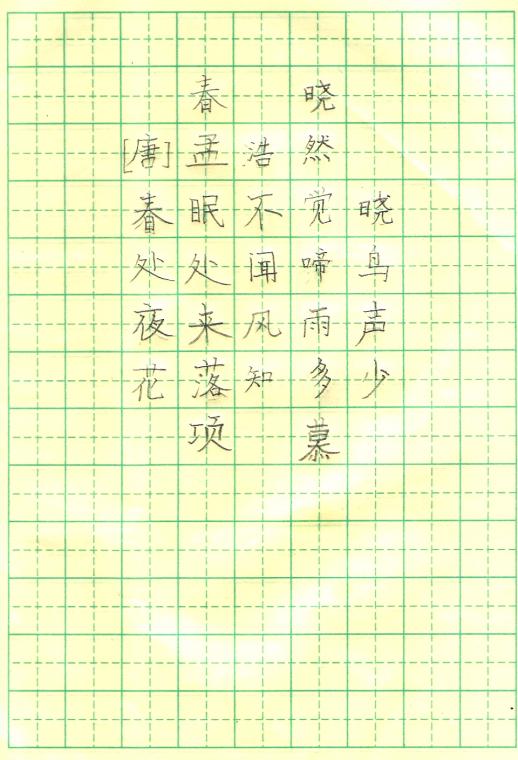 春 晓
[唐]孟浩然
春眠不觉晓
处处闻啼鸟
夜来风雨声
花落知多少
项 慕